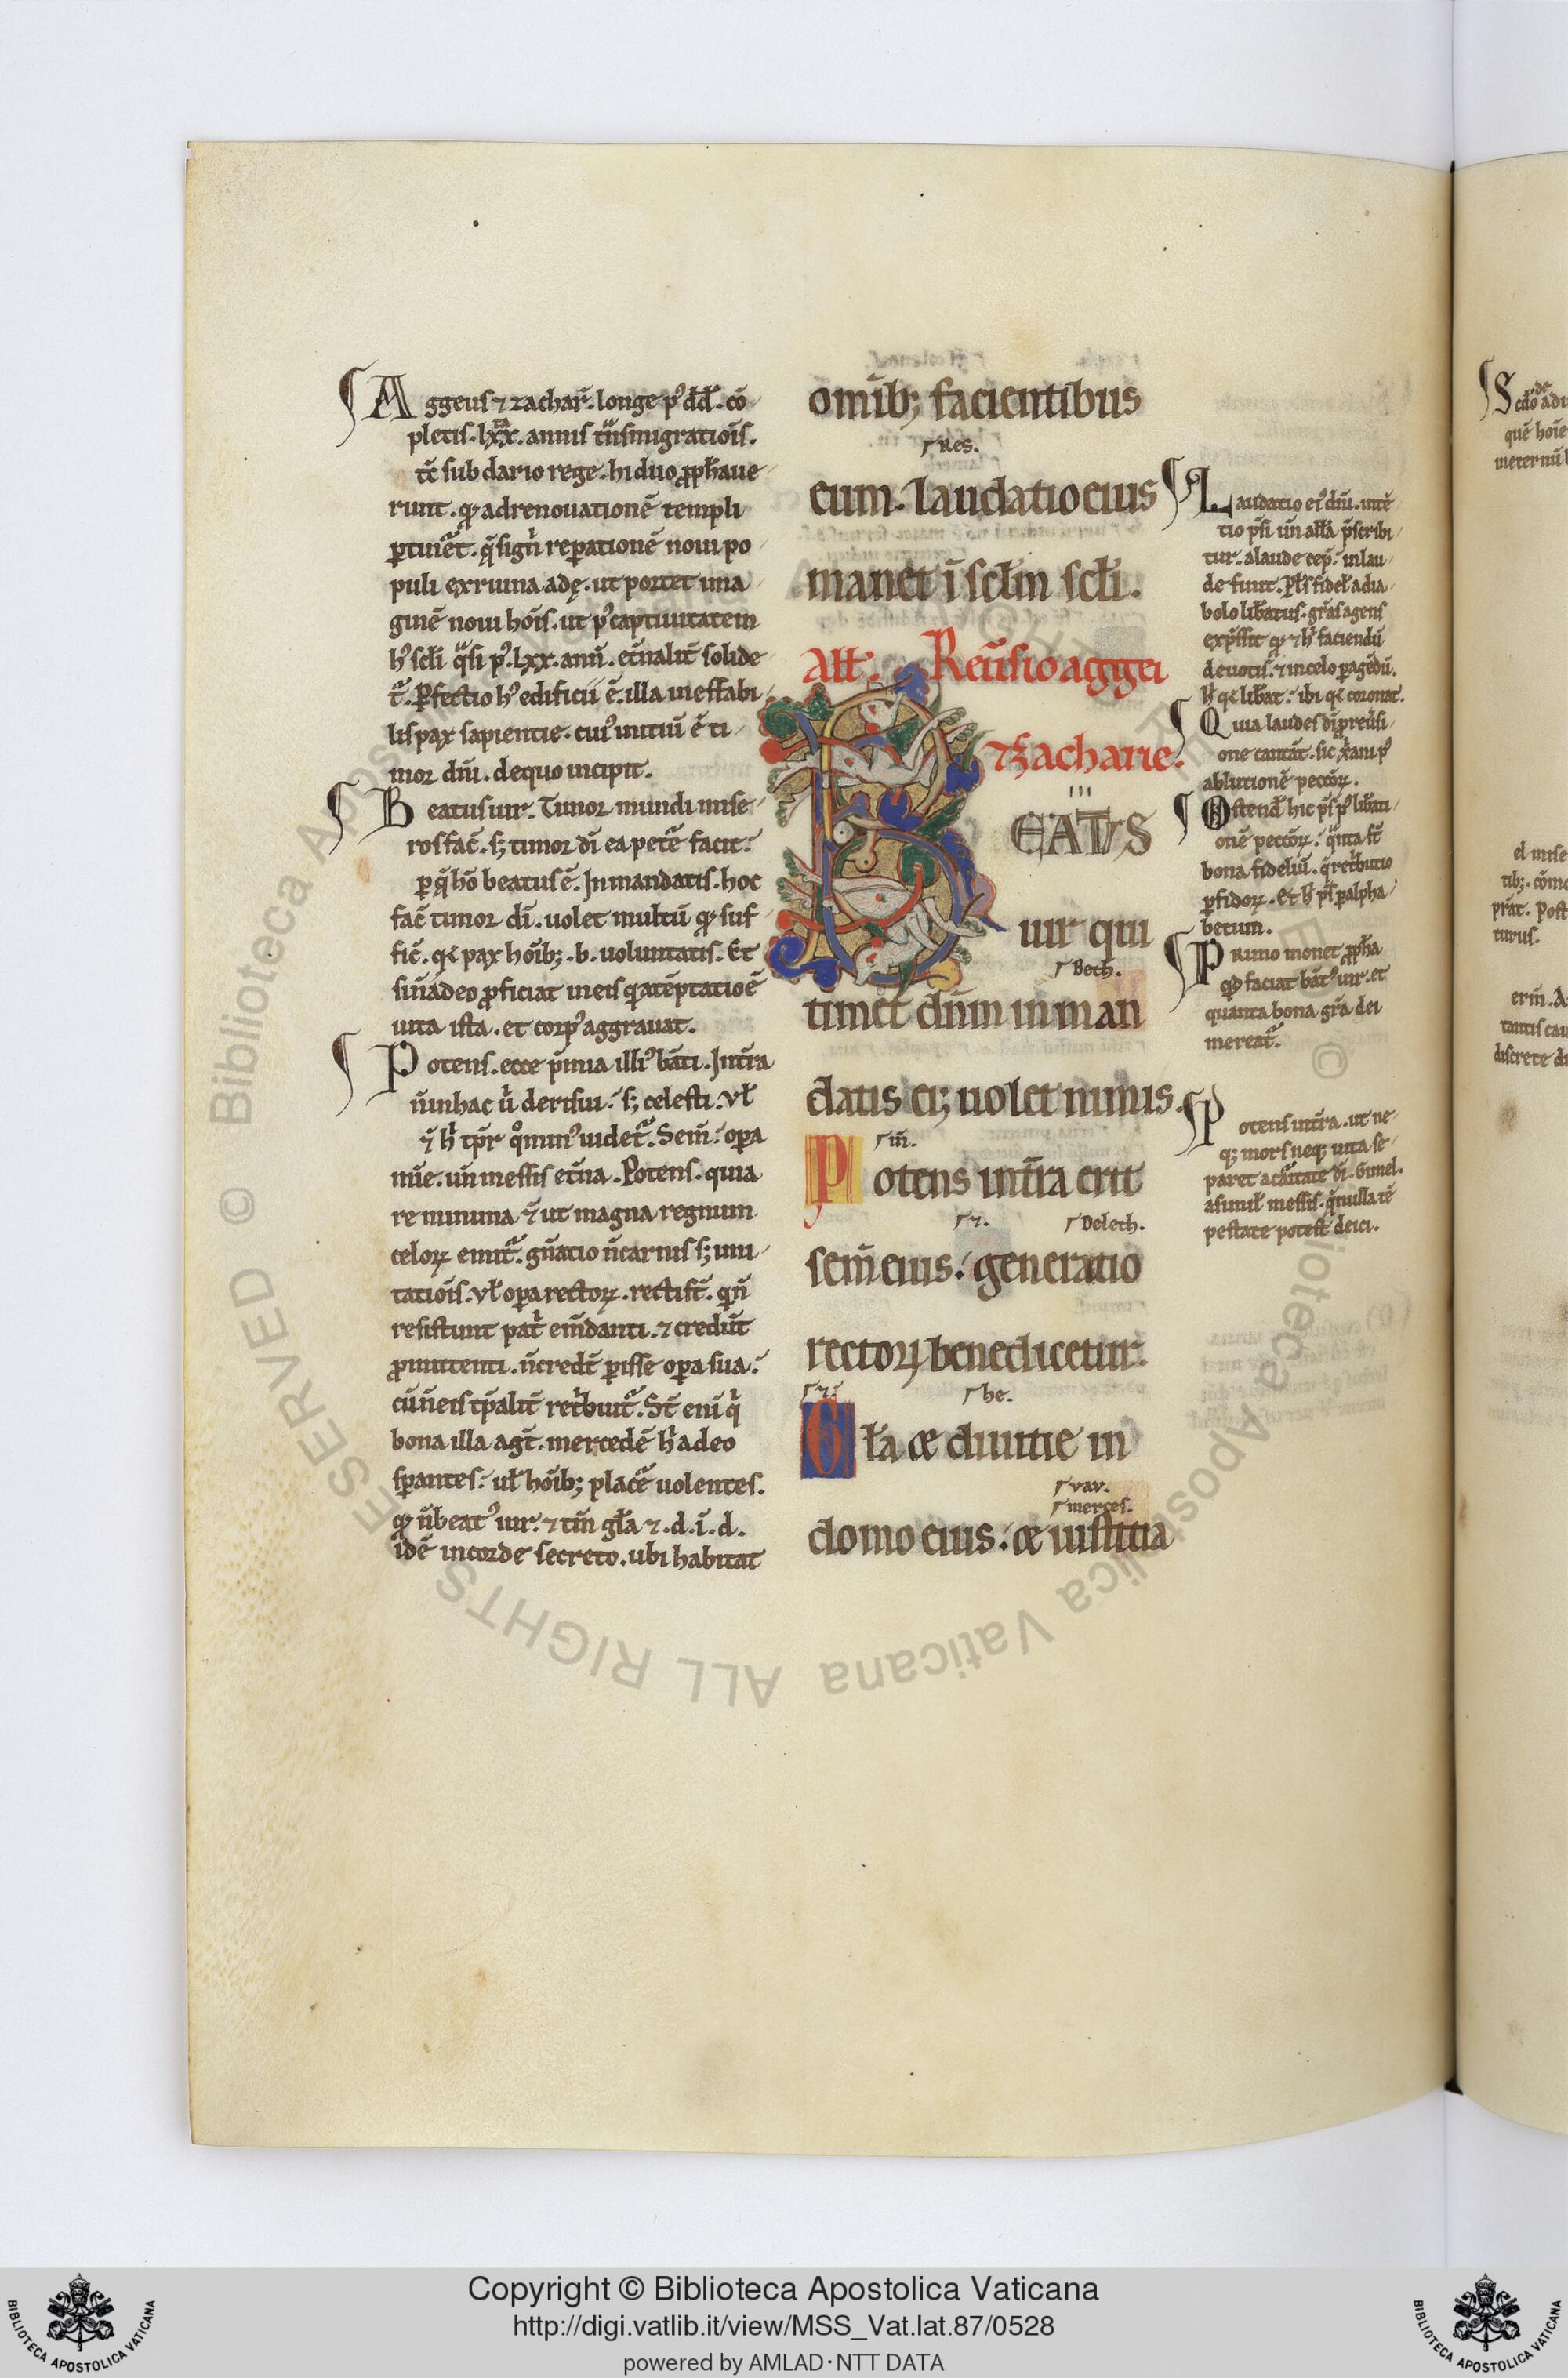 Aggeus ⁊ zachar̃. longe p᷒ dd̃. cõ
pletis. lxx. annis tñsmigratiõis.
tc̃ sub dario rege. hi duo ꝓph̃aue
runt. ꝙ ad renouationẽ templi
ꝑtinẽt. q̃ sign̄ reꝑationẽ noui po
puli ex ruina adę. ut portet ima
ginẽ noui hõis. ut p᷒ captiuitatem
h᷒ scl̃i q̃si p᷒. lxx. ann̄. et̃nalit̃ solide
t᷑. ꝑfectio h᷒ edificii ẽ. illa ineffabi
lis pax sapientie. cui᷒ initiũ ẽ ti
mor dñi. de quo incipit.
Beatus uir. Timor mundi mise
ros fac̃. sꝫ timor dĩ ea petẽ facit.
ꝑ q̃ hõ beatus ẽ. In mandatis. hoc
fac̃ timor dĩ. uolet multũ ꝙ suf
fic̃. qꝛ pax hõibꝫ. b. uoluntatis. Et
uita ista. et corp᷒ aggrauat.
Potens. ecce p̃mia illi᷒ bãti. In t̃ra
nõ in hac
mĩe. uñ messis et̃na. Potens. quia
re minima ẽ ut magna regnum
celoꝝ emit᷑. gñatio ñ carnis sꝫ imi
tatiõis. ul̃ oꝑa rectoꝝ.
resistunt pat̃ em̃danti. ⁊ credũt
ꝓmittenti. ñ credt̃ ꝑisse oꝑa sua.
bona illa agt̃. mercedẽ hͥ adeo
sꝑantes. ul̃ hõibꝫ placẽ uolentes.
ꝙ ñ beat᷒ uir. ⁊ tm̃ gl̃a ⁊. d. i. d.
idẽ in corde secreto. ubi habitat
omĩbꝫ facientibus
Res.
eum. laudatio eius
manet ĩ scl̃m scl̃i.
All̃. Reũsio aggei
⁊ zacharie.
BEATVS
uir qui
Beth.
timet dñm in man
datis eiꝫ uolet nimis.
in̄.
Potens in t̃ra erit
⁊. Delech.
sem̃ eius. generatio
rectoꝝ benedicetur.
⁊. he.
Gl̃a & diuitie in
vav.
merces.
domo eius. & iustitia
Laudatio ei᷒ dñi. intẽ
tio p̃si uñ all̃a p̃scribi
tur. a laude cep̃. in lau
de finit. Pl̃s fidel̃ a dia
bolo lib̃atus. gr̃as agens
exp̃ssit ꝙ ⁊ hͥ faciendũ
deuotis. ⁊ in celo ꝑagẽdũ.
hͥ qꝛ lib̃at. ibi qꝛ coronat.
Quia laudes dĩ p̃ reũsi
one cantãt. sic xp̃ani p᷒
ablutionẽ peccõꝝ.
Ostend̃ hic p̃s p᷒ lib̃ati
onẽ peccõꝝ. q̃nta st̃
bona fideliũ. q̃ ret̃butio
ꝑfidoꝝ. Et hͥ p̃s ꝑ alpha
betum.
Primo monet ꝓph̃a
ꝙ faciat bãt᷒ uir. et
quanta bona gr̃a dei
mereat᷑.
Potens in t̃ra. ut ne
qꝫ mors neqꝫ uita se
paret a cãitate dĩ. Gimel.
asimil̃ messis. q̃ nulla tẽ
pestate potest deici.
Copyright © Biblioteca Apostolica Vaticana
http://digi.vatlib.it/view/MSS_Vat.lat.87/0528
powered by AMLAD·NTT DATA
BIBLIOTECA APOSTOLICA VATICANA
BIBLIOTECA APOSTOLICA VATICANA